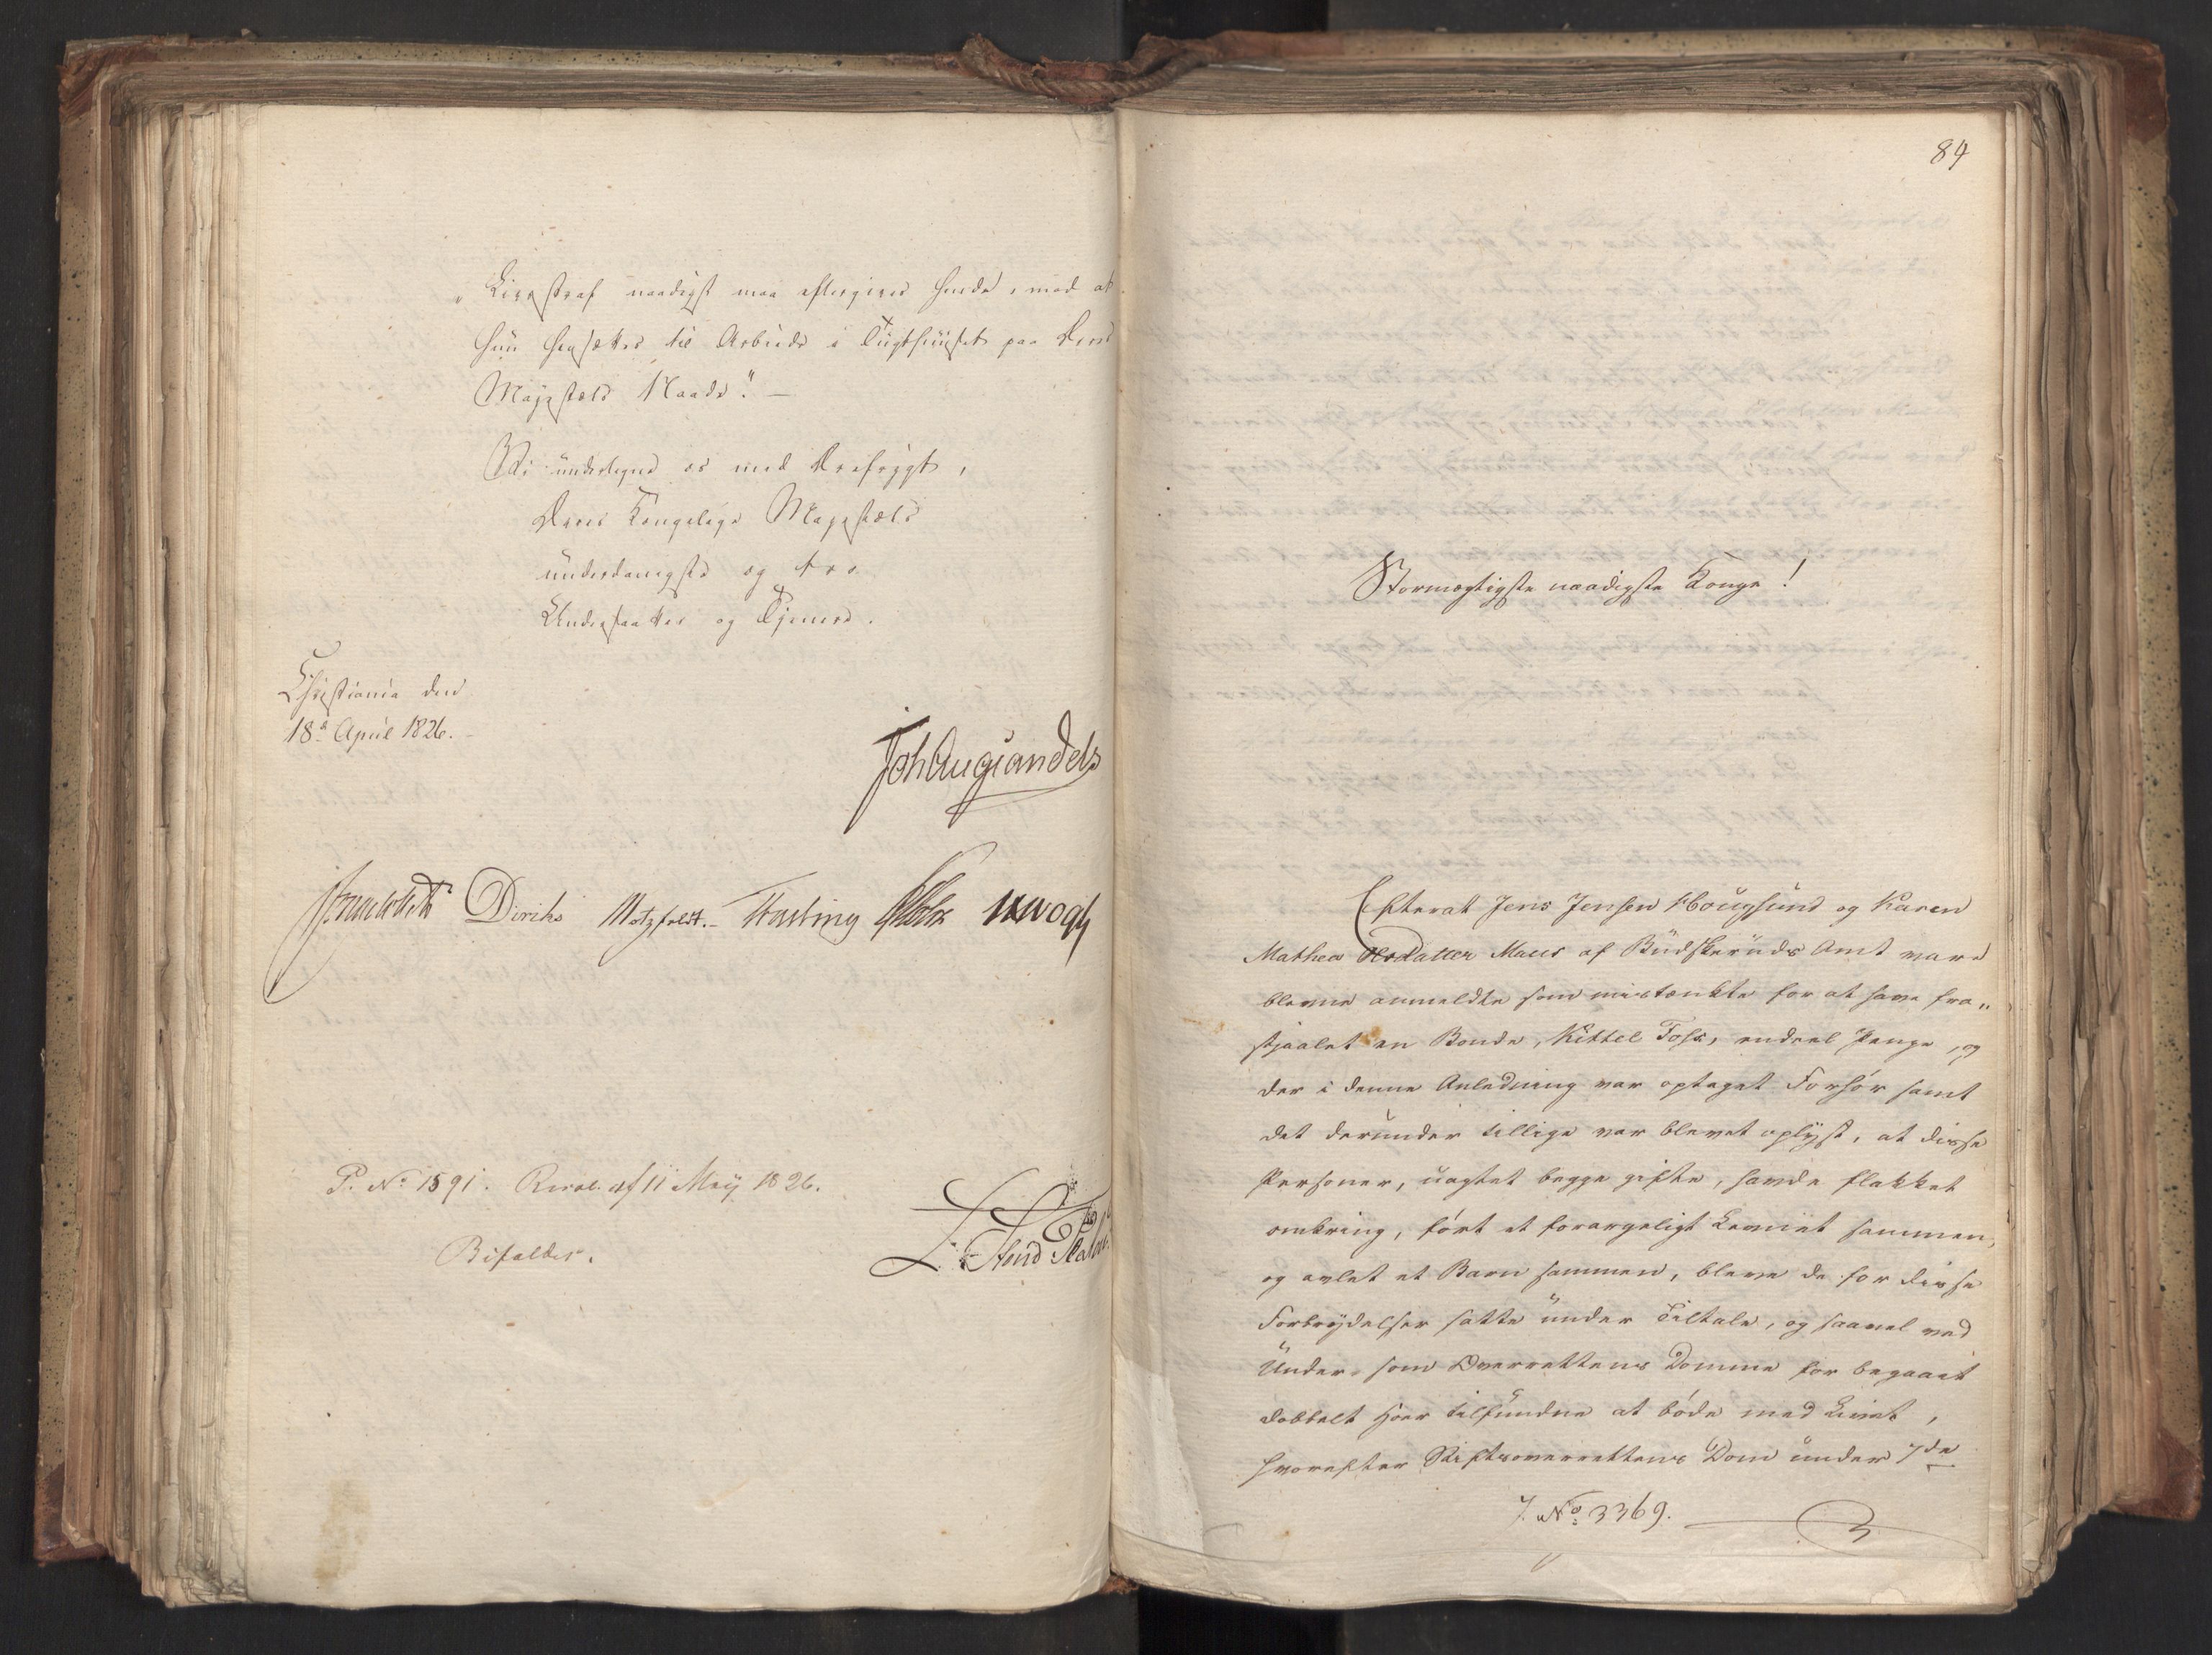 „Livsstraf naadigst maa eftergives hende, mod at
hun hensættes til Arbeide i Tugthuuset paa Deres
Majestæts Naade.” —
Vi undertegne os med Ærefrygt,
Deres Kongelige Majestæts
underdanigste og troe
Undersaatter og Tjenere.
Christiania den
18de April 1826.
Joh Aug Sandels
Diriks Motzfeldt.- Fasting
P. No 1591. Resol. af 11 Maij 1826.
Bifaldes.
84
Stormægtigste naadigste Konge!
Efterat Jens Jensen Hougsund og Karen
Mathea Olsdatter Maus af Budskeruds Amt vare
blevne anmeldte som mistænkte for at have fra„
stjaalet en Bonde, Kittel Foss, endeel Penge, og
der i denne Anledning var optaget Forhør samt
det derunder tillige var blevet oplyst, at disse
Personer, uagtet begge gifte, havde flakket
omkring, ført et forargeligt Levnet sammen,
og avlet et Barn sammen, bleve de for disse
Forbrydelser satte under Tiltale, og saavel ved
Under- som Overrettens Domme for begaaet
dobbelt Hoer tilfundne at bøde med Livet,
hvorefter Stiftsoverrettens Dom under 7de
J. No 3369.